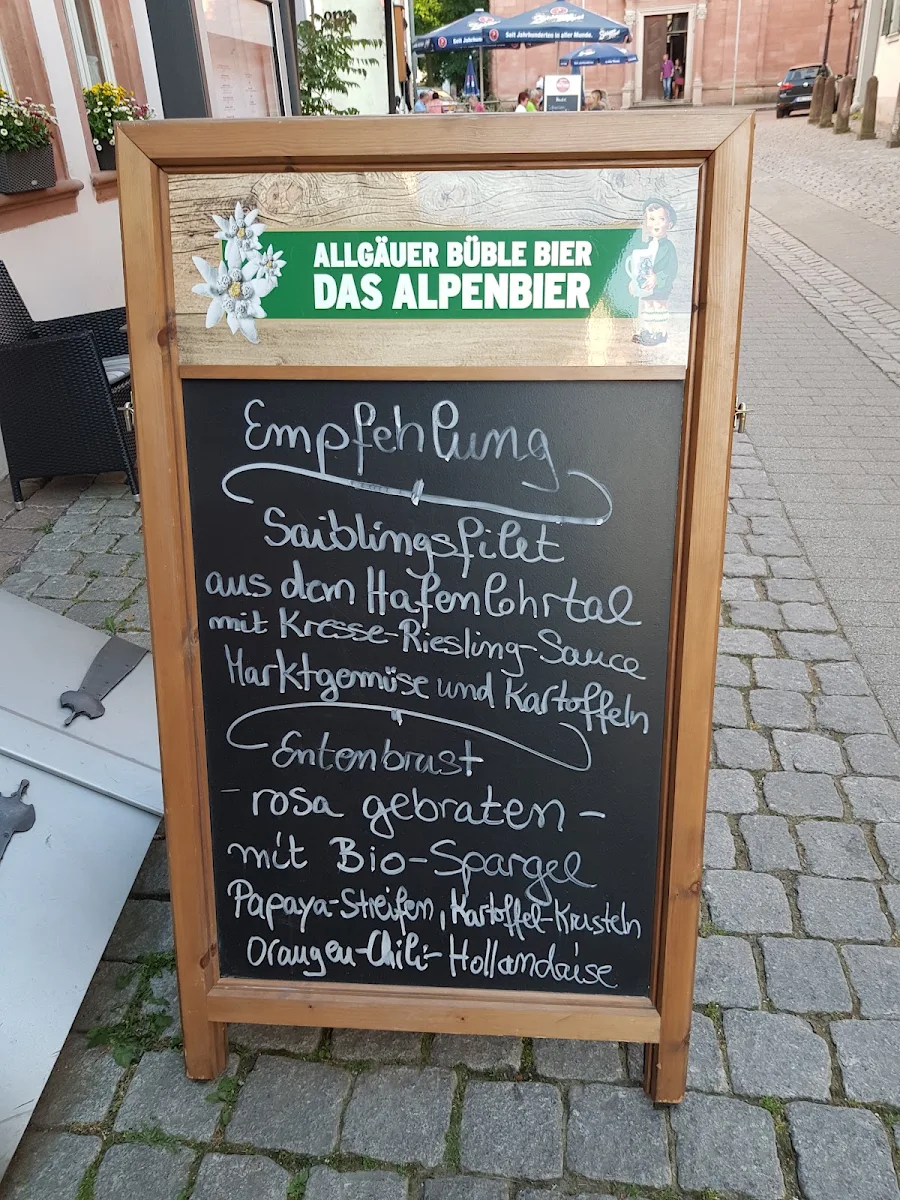 Seit Jahrhunderten in aller Munde.
ALLGÄUER BÜBLE BIER
DAS ALPENBIER
Empfehlung
Saiblingsfilet
aus dem Hafenlohrtal
mit Kresse-Riesling-Sauce
Marktgemüse und Kartoffeln
Entenbrust
- rosa gebraten -
mit Bio-Spargel
Papaya-Streifen, Kartoffel-Krusteln
Orangen-Chili-Hollandaise